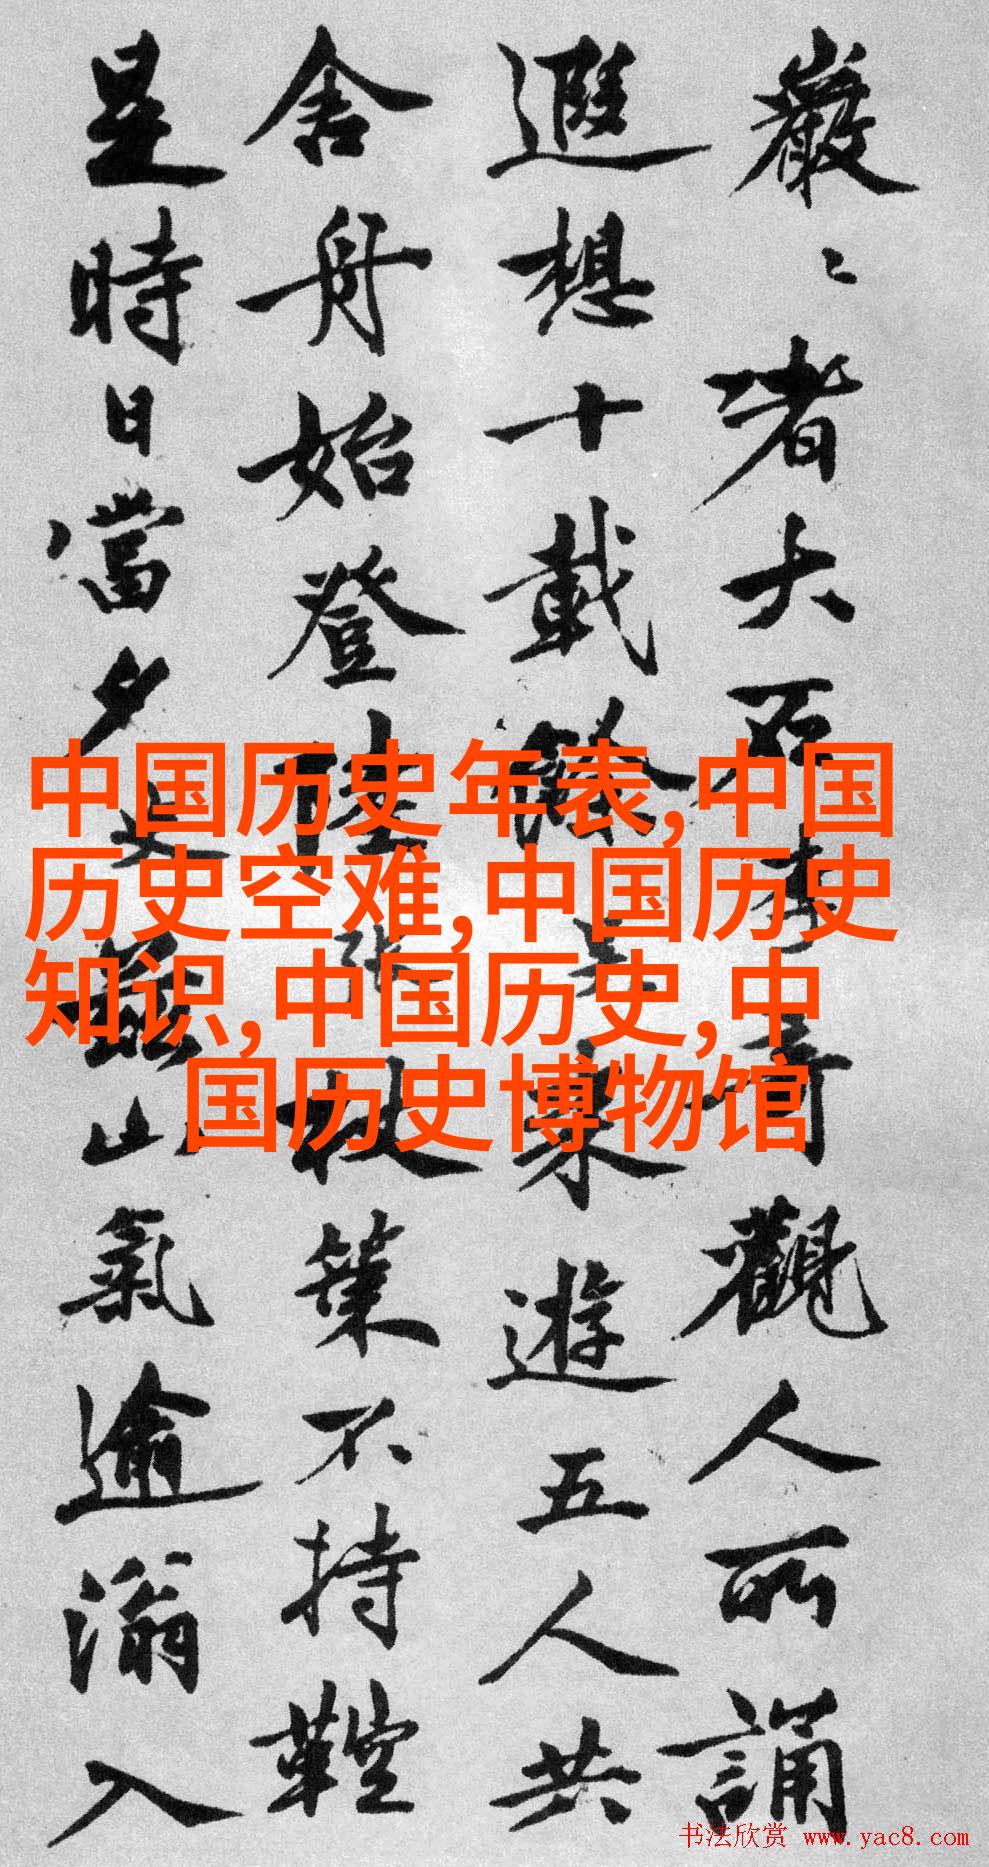 巖〻者大石奇觀人所誦
遐想十載餘來遊五人共
舍舟始登陸杖策不持鞚
是時日當夕山氣逾滃入
中国历史年表,中国
历史空难,中国历史
知识,中国历史,中
国历史博物馆
书法欣赏 www.yac8.com